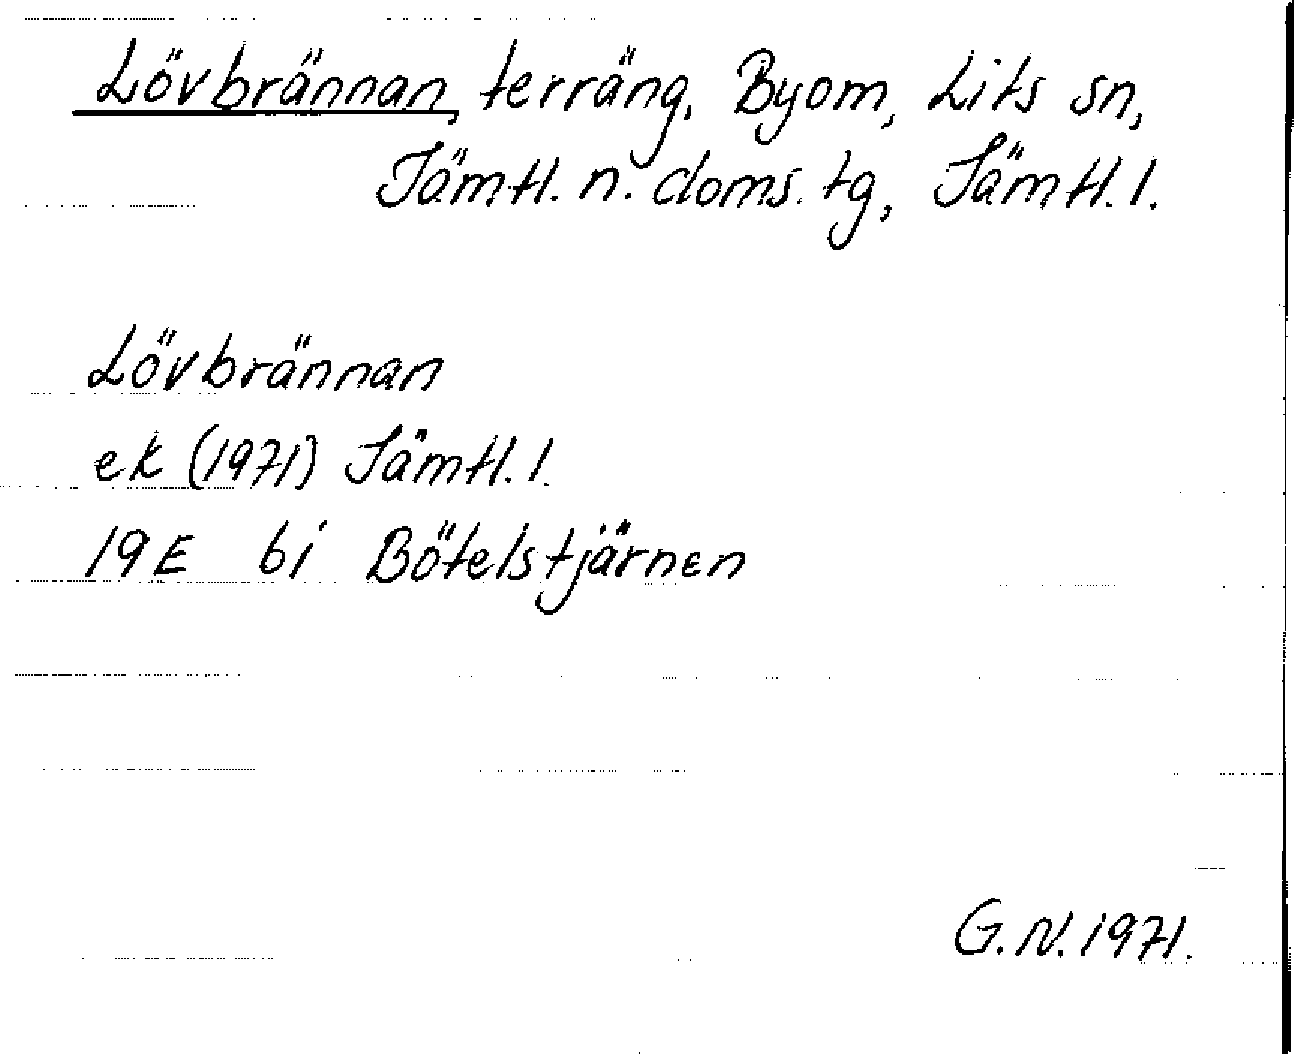 Lövbrännan, terräng, Byom, Lits sn,
Jämtl. n. doms. tg, Jämtl. l.
Lövbrännan
ek (1971) Jämtl. l.
19E bi Bötelstjärnen
G.N. 1971.